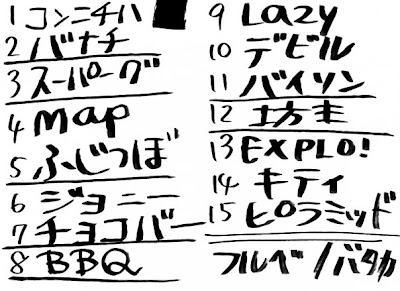 1 コンニチハ
2 バナナ
3 スーパーグ
4 map
5 ふじつぼ
6 ジョニー
7 チョコバー
8 BBQ
9 Lazy
10 デビル
11 バイソン
12 坊主
13 EXPLO!
14 キティ
15 ピラミッド
フルベ/バタカ